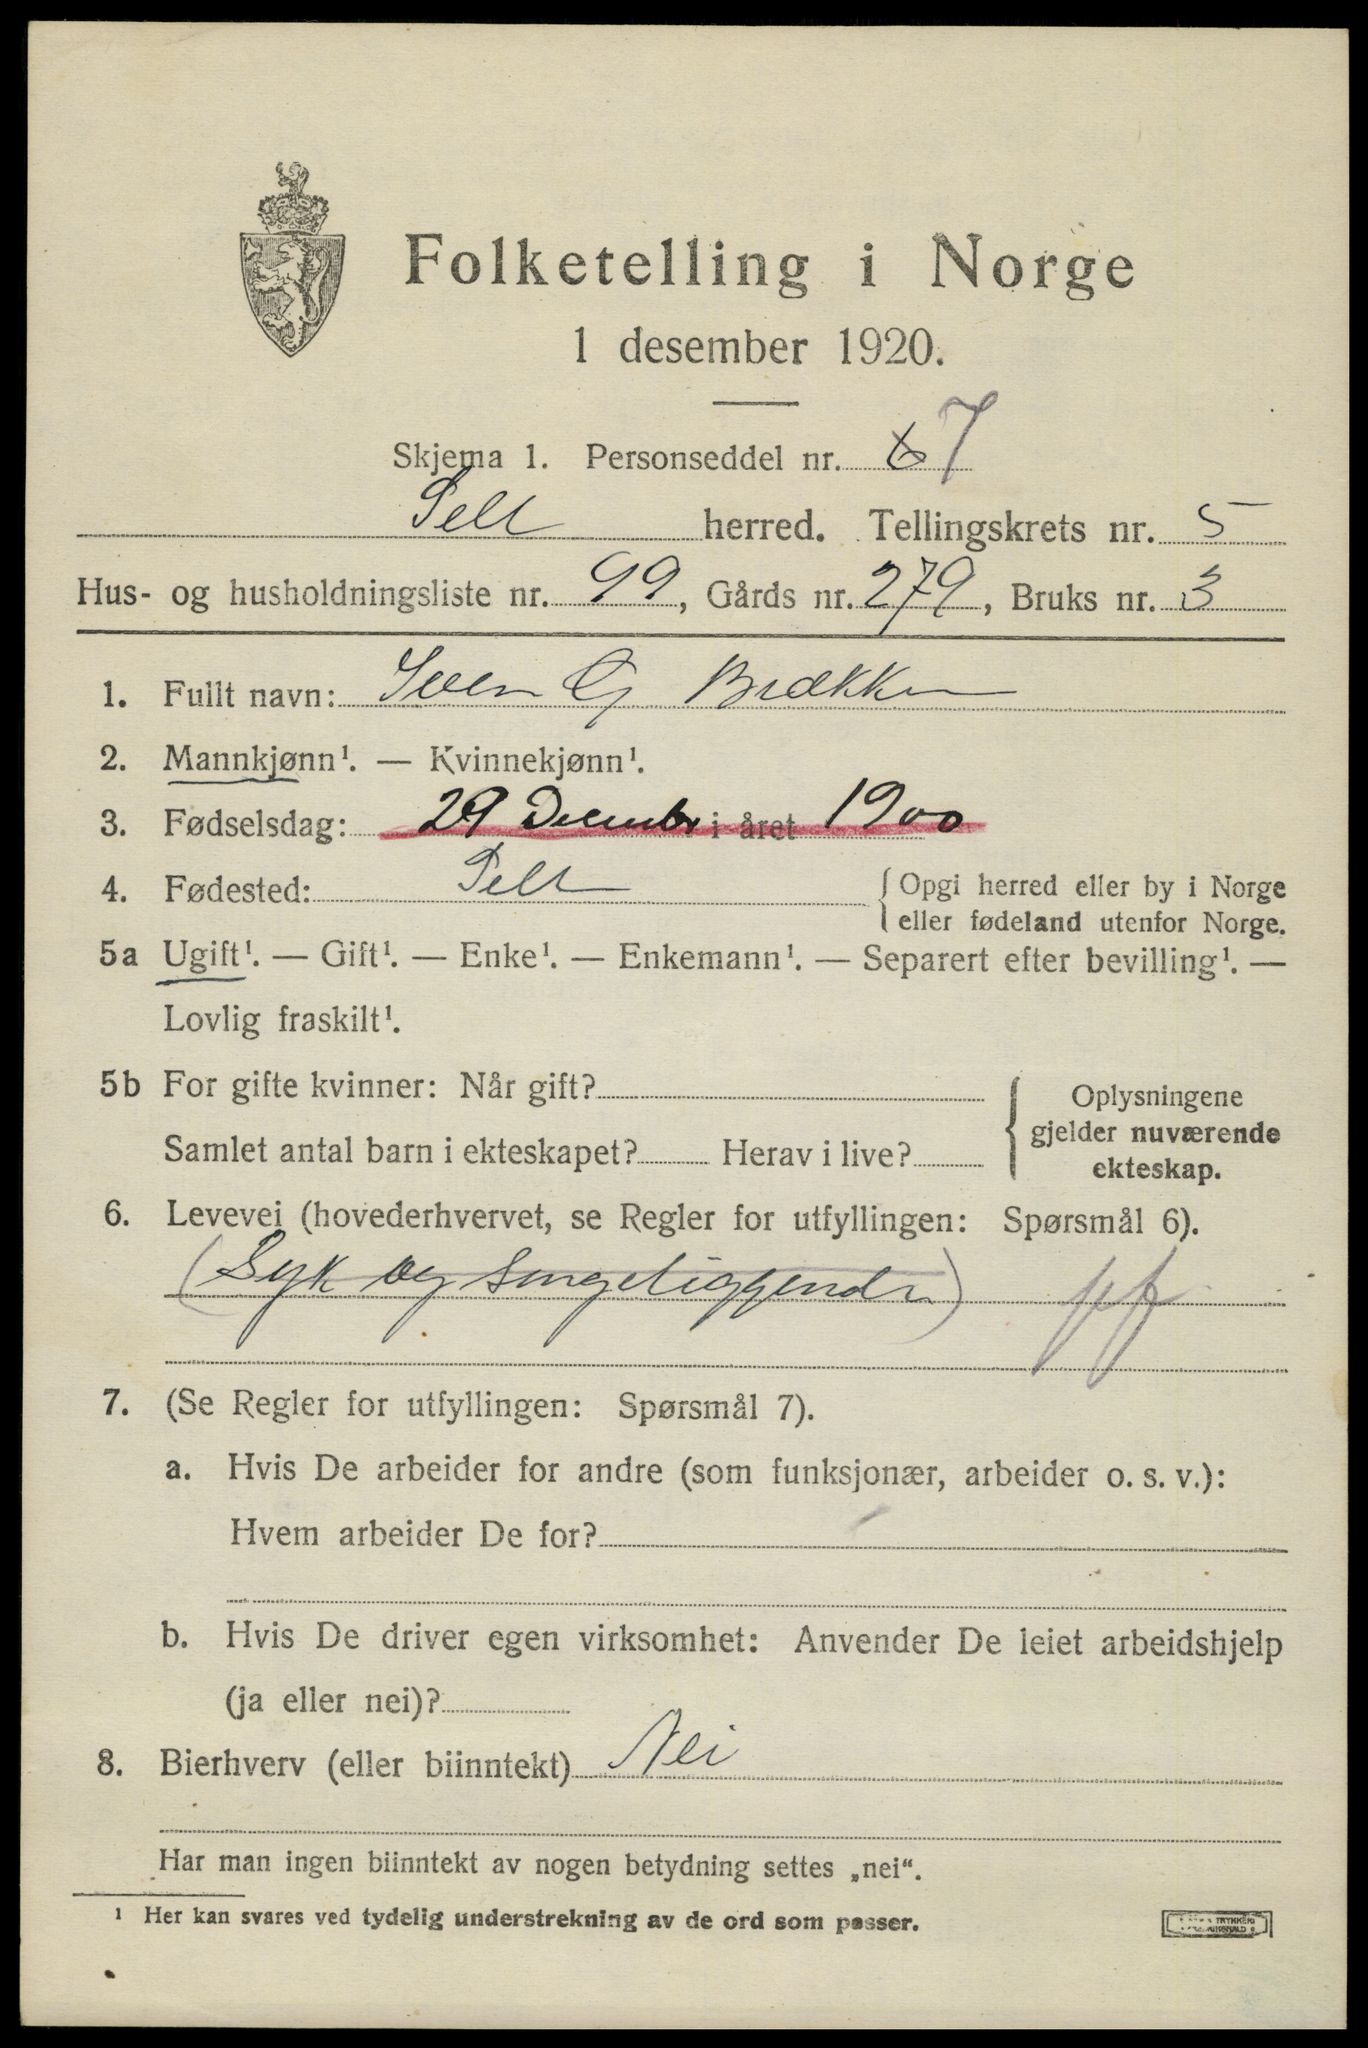 Folketelling i Norge
1 desember 1920.
Skjema 1. Personseddel nr. 6 7
Sell herred. Tellingskrets nr. 5
Hus- og husholdningsliste nr. 99, Gårds nr. 279, Bruks nr. 3
1. Fullt navn: Sven G Brækken
2. Mannkjønn¹. — Kvinnekjønn¹.
3. Fødselsdag: 29 December i året 1900
4. Fødested: Sell {Opgi herred eller by i Norge
eller fødeland utenfor Norge.
5a Ugift¹. — Gift¹. — Enke¹. — Enkemann¹. — Separert efter bevilling¹. —
Lovlig fraskilt¹.
5b For gifte kvinner: Når gift?
Samlet antal barn i ekteskapet? Herav i live?
{Oplysningene
gjelder nuværende
ekteskap.
6. Levevei (hovederhvervet, se Regler for utfyllingen: Spørsmål 6).
(Syk og sengeliggende)
7. (Se Regler for utfyllingen: Spørsmål 7).
a. Hvis De arbeider for andre (som funksjonær, arbeider o. s. v.):
Hvem arbeider De for?
b. Hvis De driver egen virksomhet: Anvender De leiet arbeidshjelp
(ja eller nei)?
8. Bierhverv (eller biinntekt) Nei
Har man ingen biinntekt av nogen betydning settes „nei“.
¹ Her kan svares ved tydelig understrekning av de ord som passer.